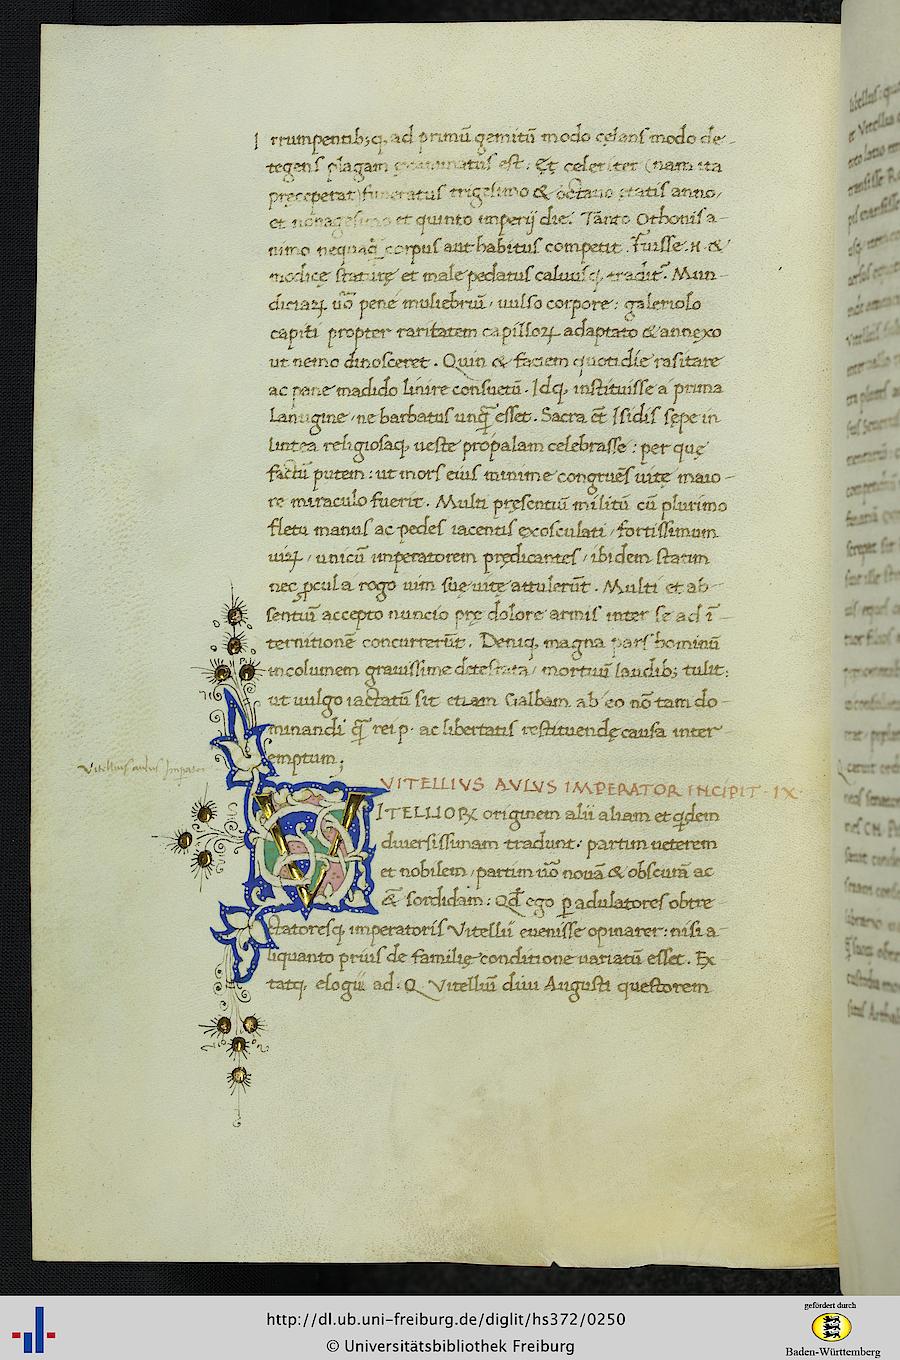 Irrumpentib; q, ad primū gemitū modo cęlans modo de-
tegens plagam exanimatus est. Et celeriter (nam ita
pręceperat) funeratus trigesimo & octauo ętatis anno,
et nonagesimo et quinto imperij die. Tāto Othonis a-
nimo nequaq̄ corpus aut habitus competit. Fuisse .n. &
modicę staturę et male pedatus caluusq, tradit᷑. Mun-
diciaꝝ uō pene muliebriū, uulso corpore: galeriolo
capiti propter raritatem capilloꝝ adaptato & annexo
ut nemo dinosceret. Quin & faciem quotidie rasitare
ac pane madido linire consuetū. Idq, instituisse a prima
lanugine, ne barbatus unq̄ esset. Sacra ēt Isidis sępe in
lintea religiosaq, ueste propalam celebrasse: per quę
factū putem: ut mors eius minime congruēs uitę maio-
re miraculo fuerit. Multi pręsentiū militū cū plurimo
fletu manus ac pedes iacentis exosculati, fortissimum
uiꝝ, unicū imperatorem prędicantes, ibidem statim
nec ꝓcul a rogo uim suę uitę attulerūt. Multi et ab-
sentiū accepto nuncio prę dolore armis inter se ad ī-
ternitionē concurrerūt. Deniq, magna pars hominū
incolumem grauissime detestata, mortuū laudib; tulit:
ut uulgo iactatū sit etiam Galbam ab eo nō tam do-
minandi q̄ rei p. ac libertatis restituendę causa inter-
emptum;
Vitellius aulus Imperator
VITELLIVS AVLVS IMPERATOR INCIPIT . IX.
VITELLIOꝝ originem alii aliam et q̇dem
diuersissimam tradunt: partim ueterem
et nobilem, partim uō nouā & obscurā ac
&ā sordidam: Qđ ego ꝑ adulatores obtre-
ctatoresq, imperatoris Vitellii euenisse opinarer: nisi a-
liquanto prius de familię conditione uariatū esset. Ex
tatq, elogii ad .Q. Vitelliū diui Augusti questorem
http://dl.ub.uni-freiburg.de/diglit/hs372/0250
© Universitätsbibliothek Freiburg
gefördert durch
Baden-Württemberg